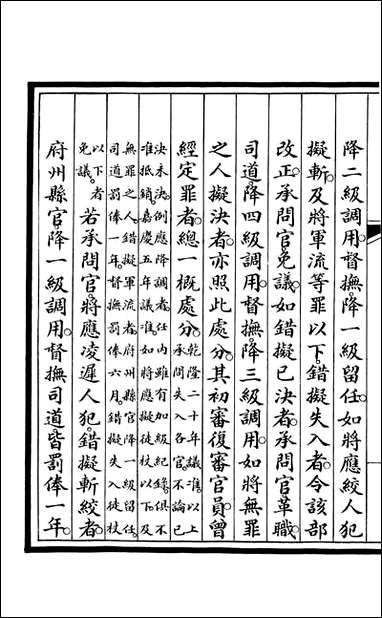 降二級調用。督撫降一級留任。如將應絞人犯
擬斬。及將軍流等罪以下。錯擬失入者。令該部
改正。承問官免議。如錯擬已決者。承問官革職。
司道降四級調用。督撫。降三級調用。如將無罪
之人擬決者。亦照此處分。其初審復審官員。曾
經定罪者。總一概處分。乾隆二十年議准。以上
承問失入各官。不論已
決未決。例應降調者。任內雖有加級紀錄。俱不
准抵銷。嘉慶五年議准。如將應擬徒杖以下。及
無罪之人。錯擬軍流者。府州縣官。降一級留任。
司道罰俸一年。督撫罰俸六月。錯擬失入徒杖
以下者
免議。若承問官。將應凌遲人犯。錯擬斬絞者。
府州縣官。降一級調用。督撫司道。皆罰俸一年。